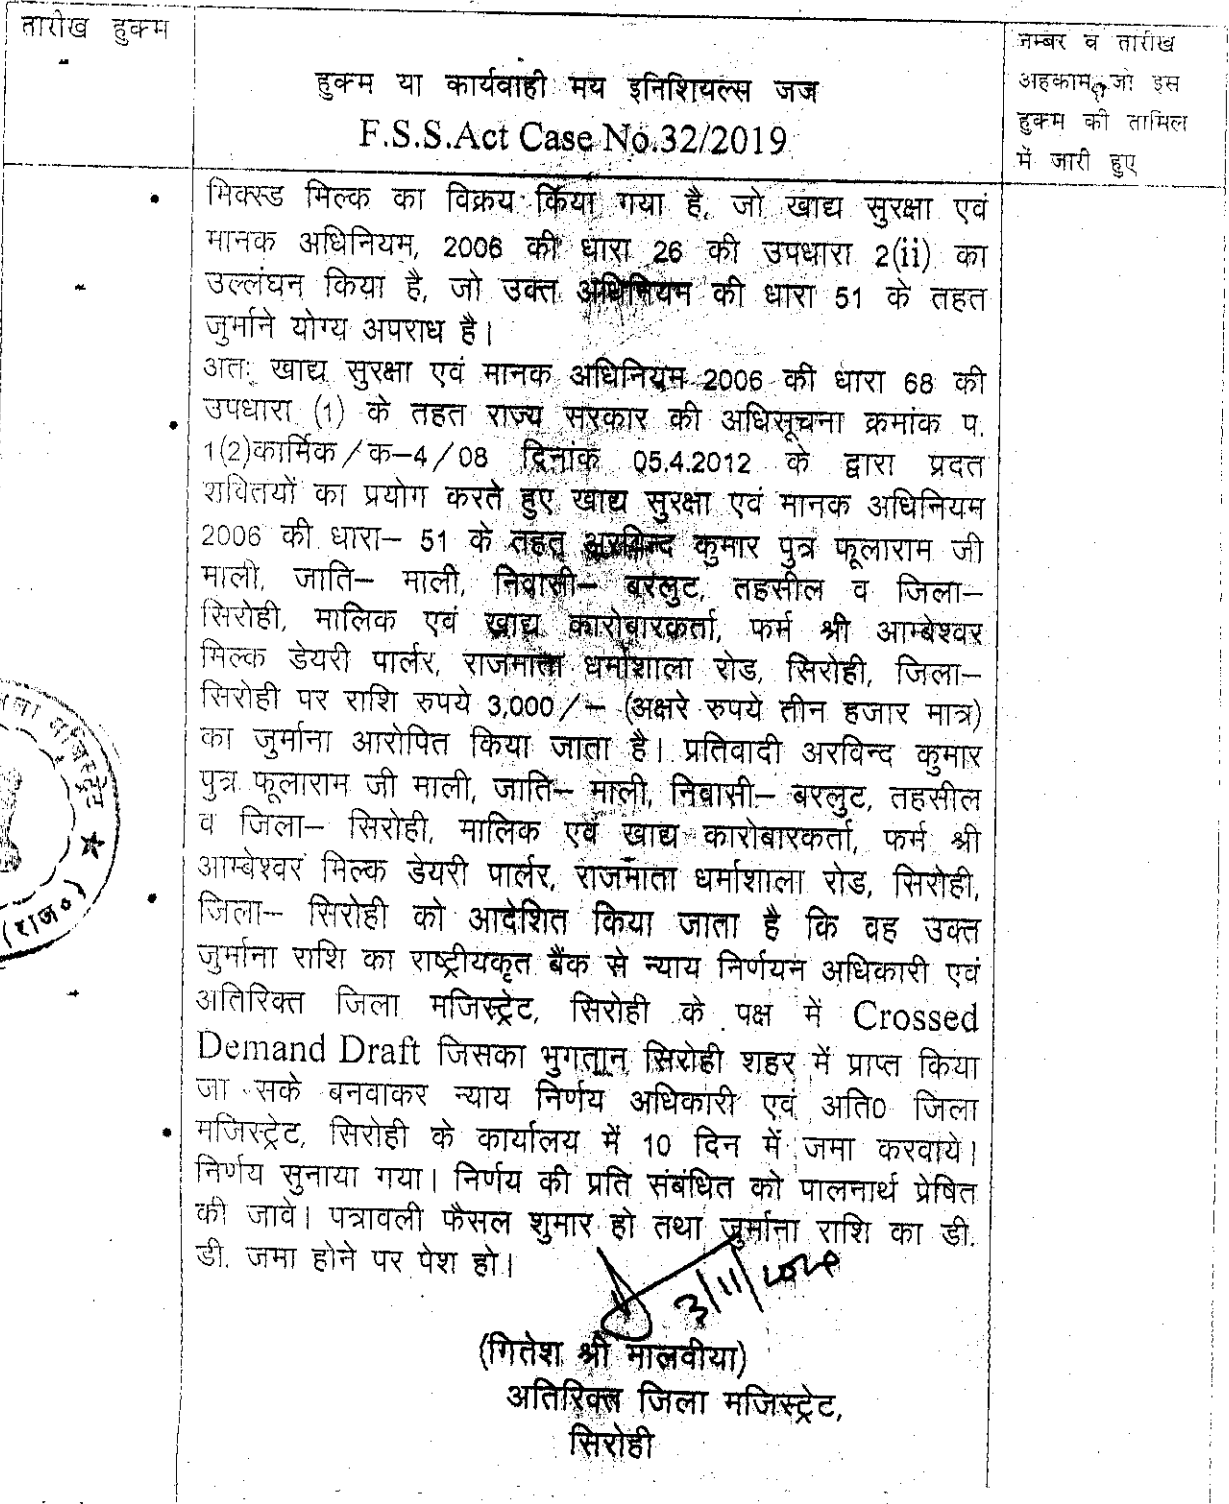 तारीख हुक्म
हुक्म या कार्यवाही मय इनिशियल्स जज
F.S.S.Act Case No.32/2019
नम्बर व तारीख
अहकाम जो इस
हुक्म की तामिल
में जारी हुए
मिक्स्ड मिल्क का विक्रय किया गया है, जो खाद्य सुरक्षा एवं
मानक अधिनियम, 2006 की धारा 26 की उपधारा 2(ii) का
उल्लंघन किया है, जो उक्त अधिनियम की धारा 51 के तहत
जुर्माने योग्य अपराध है।
अतः खाद्य सुरक्षा एवं मानक अधिनियम 2006 की धारा 68 की
उपधारा (1) के तहत राज्य सरकार की अधिसूचना क्रमांक प.
1(2)कार्मिक/क–4/08 दिनांक 05.4.2012 के द्वारा प्रदत
शक्तियों का प्रयोग करते हुए खाद्य सुरक्षा एवं मानक अधिनियम
2006 की धारा– 51 के तहत अरविन्द कुमार पुत्र फूलाराम जी
माली, जाति– माली, निवासी– बरलुट, तहसील व जिला–
सिरोही, मालिक एवं खाद्य कारोबारकर्ता, फर्म श्री आम्बेश्वर
मिल्क डेयरी पार्लर, राजमाता धर्माशाला रोड, सिरोही, जिला–
सिरोही पर राशि रुपये 3,000/– (अक्षरे रुपये तीन हजार मात्र)
का जुर्माना आरोपित किया जाता है। प्रतिवादी अरविन्द कुमार
पुत्र फूलाराम जी माली, जाति– माली, निवासी– बरलुट, तहसील
व जिला– सिरोही, मालिक एवं खाद्य कारोबारकर्ता, फर्म श्री
आम्बेश्वर मिल्क डेयरी पार्लर, राजमाता धर्माशाला रोड, सिरोही,
जिला– सिरोही को आदेशित किया जाता है कि वह उक्त
जुर्माना राशि का राष्ट्रीयकृत बैंक से न्याय निर्णयन अधिकारी एवं
अतिरिक्त जिला मजिस्ट्रेट, सिरोही के पक्ष में Crossed
Demand Draft जिसका भुगतान सिरोही शहर में प्राप्त किया
जा सके बनवाकर न्याय निर्णय अधिकारी एवं अति0 जिला
मजिस्ट्रेट, सिरोही के कार्यालय में 10 दिन में जमा करवाये।
निर्णय सुनाया गया। निर्णय की प्रति संबंधित को पालनार्थ प्रेषित
की जावे। पत्रावली फैसल शुमार हो तथा जुर्माना राशि का डी.
डी. जमा होने पर पेश हो।
3/11/2020
(गितेश श्री मालवीया)
अतिरिक्त जिला मजिस्ट्रेट,
सिरोही
मजिस्ट्रेट ★
(राज०)